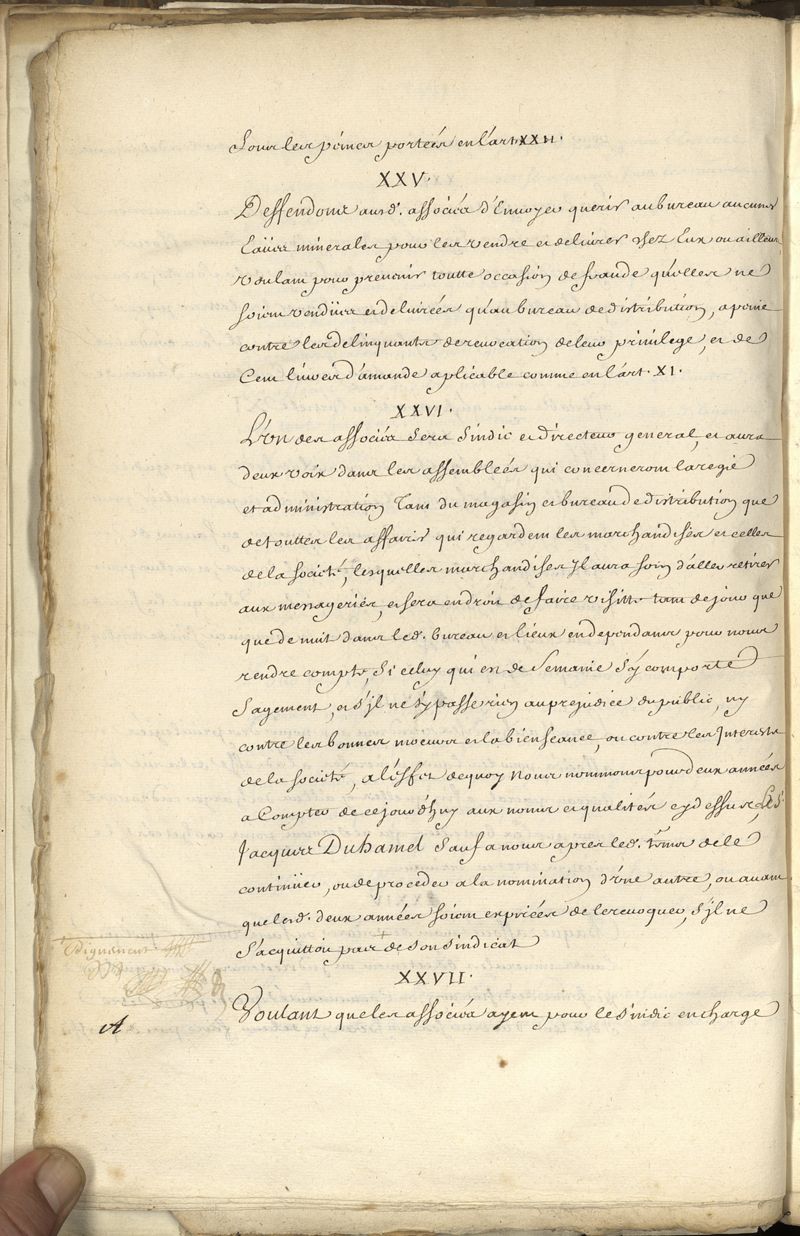 sous les peines portées en l'art. XXII.
XXV.
Deffendons ausd. associés d'Envoyer querir au bureau aucunes
Eaües minerales pour les vendre et delivrer chez Eux ou ailleurs
voulant pour prevenir toutte occasion de fraude qu'elles ne
soient vendües et delivrées qu'au bureau de distribution, a peine
contre les delinquants de revocation de leur privilege, et de
Cent livres d'amande aplicable comme en l'art. XI.
XXVI.
L'un des associés sera sindic et directeur general, et aura
deux voix dans les assemblées qui concerneront la regie
et administration tant du magasin et bureau de distribution que
de touttes les affaires qui regardent les marchandises et celles
de la societé, lesquelles marchandises Jl aura soin d'aller retirer
aux messageries, et sera en droit de faire visitte tant de jour que
que de nuit dans led. bureau et lieux en dependans pour nous
rendre compte, si celuy qui est de semaine s'y comporte
sagement, et s'jl ne s'y passe rien au prejudice du public, ny
contre les bonnes moeurs et la bienseance, ou contre les Jnterests
de la societé, a l'effet de quoy Nous nommons pour deux années
a Compter de ce jourd'huy aux noms et qualités cy dessus, Le S.
Jacques Duhamel sauf a nous apres led. tems de le
continüer, ou de proceder a la nomination d'une autre, ou avant
que lesd. deux années soient expirées de le revoquer, s'jl ne
s'acquittoit pas de son sindicat
XXVII.
Voulant que les associés ayent pour le sindic en charge
A